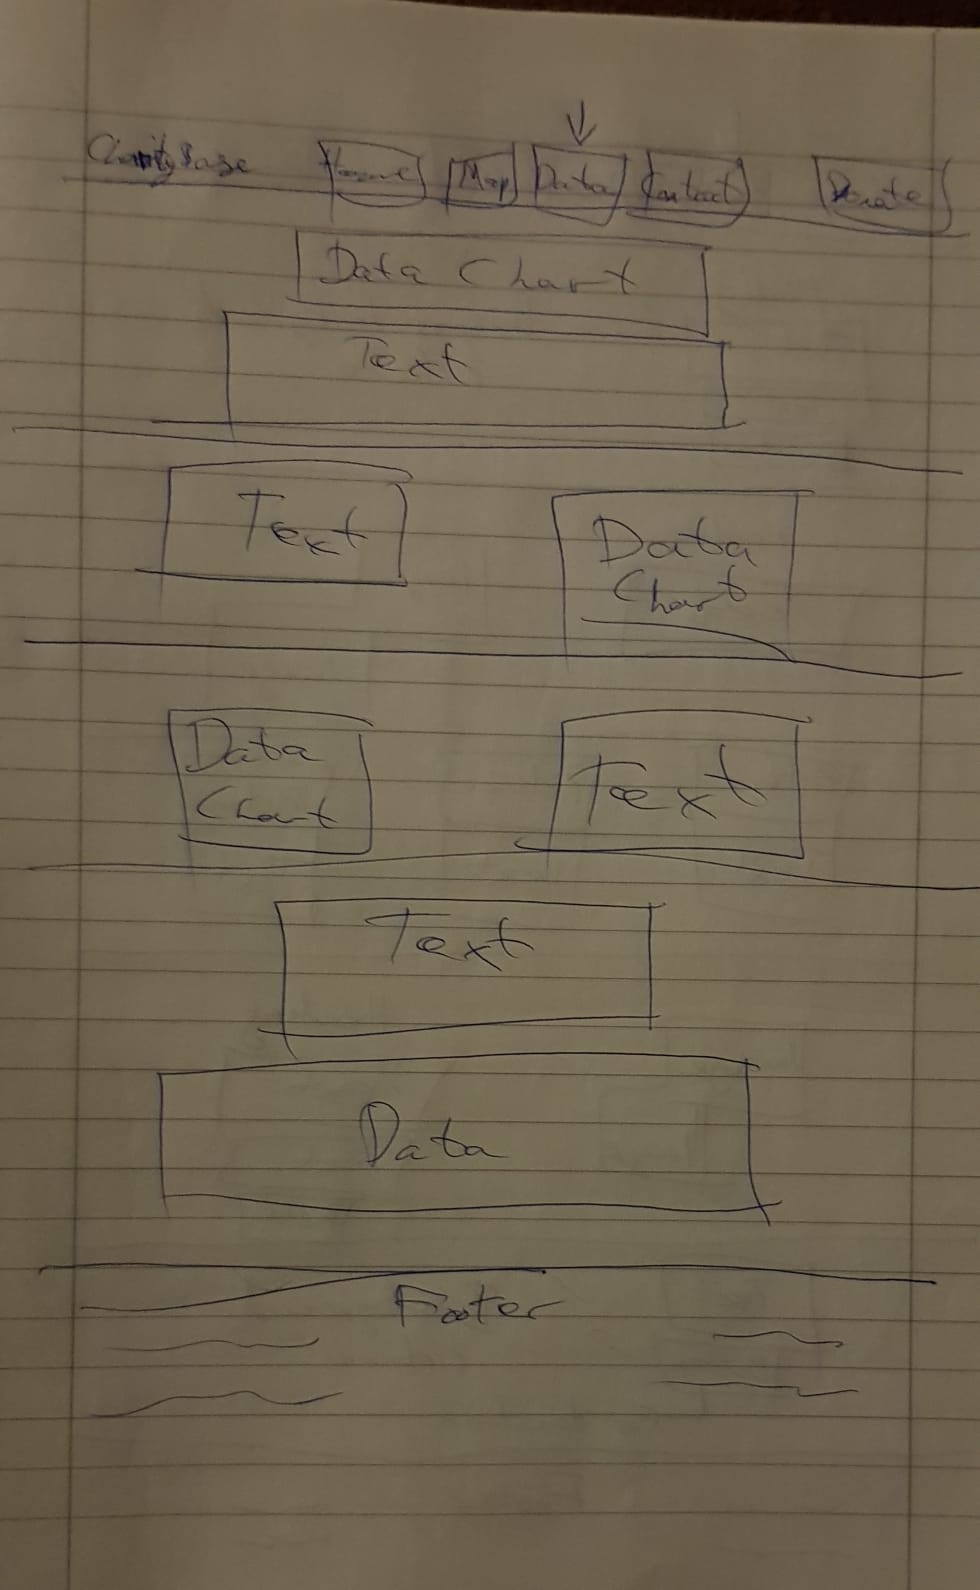 Home Map Data Contact Donate
Data Chart
Text
Text
Data
Chart
Data
Chart
Text
Text
Data
Footer